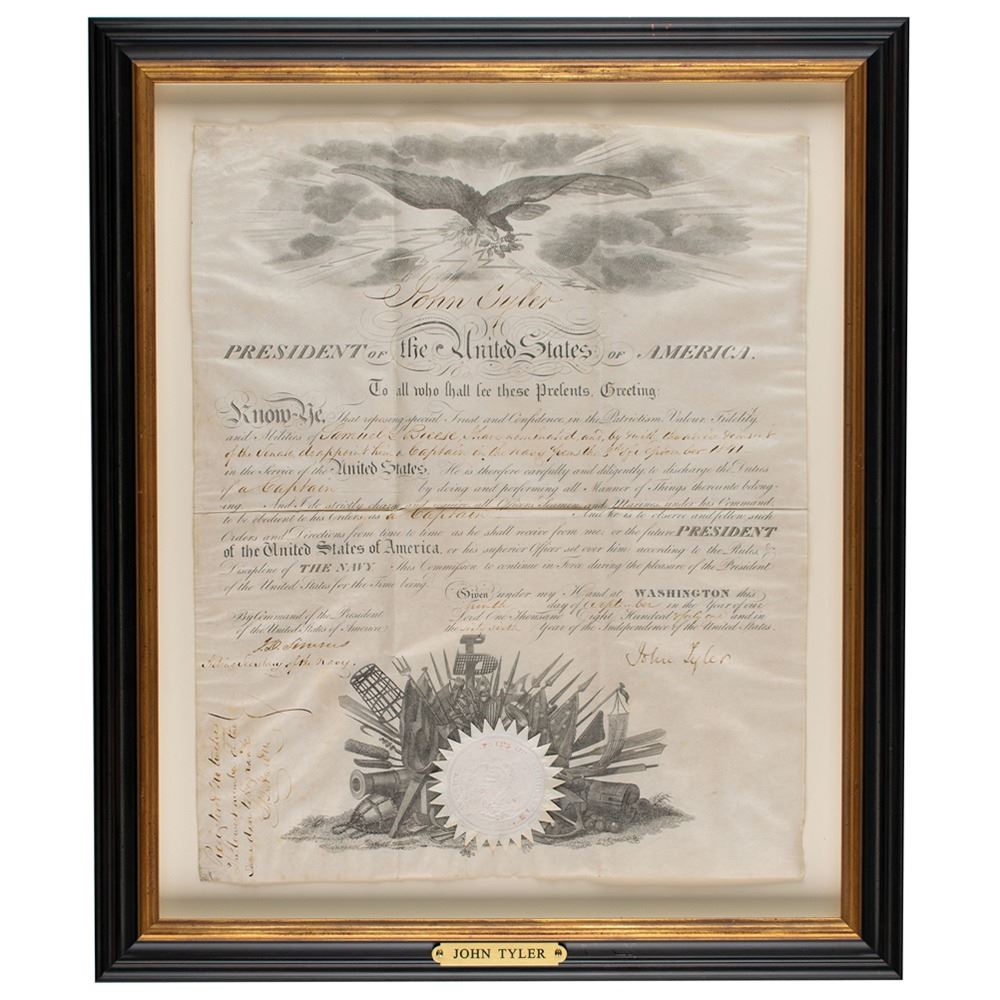 John Tyler
PRESIDENT OF the United States OF AMERICA.
To all who shall see these Presents, Greeting:
Know Ye, That reposing special Trust and Confidence in the Patriotism, Valour, Fidelity,
and Abilities of Samuel L. Breese I have nominated and by and with the advice & consent
of the Senate do appoint him a Captain in the Navy from the 8th of September 1841
in the Service of the United States. He is therefore carefully and diligently to discharge the Duties
of a Captain by doing and performing all Manner of Things thereunto belong-
ing. And I do strictly charge and require all Officers Seamen and Marines under his Command
to be obedient to his Orders as a Captain And he is to observe and follow such
Orders and Directions from time to time as he shall receive from me, or the future PRESIDENT
of the United States of America, or his superior Officer set over him, according to the Rules &
Discipline of THE NAVY. This Commission to continue in Force during the pleasure of the President
of the United States for the Time being.
Given under my Hand at WASHINGTON this
day of September in the Year of our
Lord One Thousand Eight Hundred & forty one and in
the sixty sixth Year of the Independence of the United States.
By Command of the President
of the United States of America:
J. D. Simms
Acting Secretary of the Navy.
John Tyler
JOHN TYLER